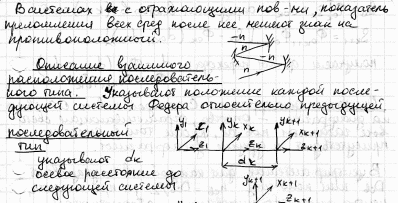 В системах с отражающими пов-ми, показатель
преломления всех сред после нее меняют знак на
противоположный.
-n
n
-n
n
Описание взаимного
расположения последователь-
ного типа. Указывают положение каждой после-
дующей системы Федера относительно предыдущей
последовательный
тип
указывают dk
осевое расстояние до
следующей системы
y1
x1
z1
yk
xk
zk
yk+1
xk+1
zk+1
dk
yk+1
xk+1
zk+1